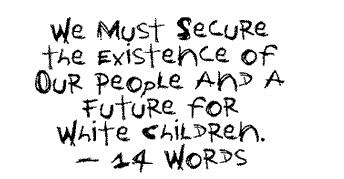 We Must Secure
the Existence of
Our People And A
Future for
White Children.
– 14 Words